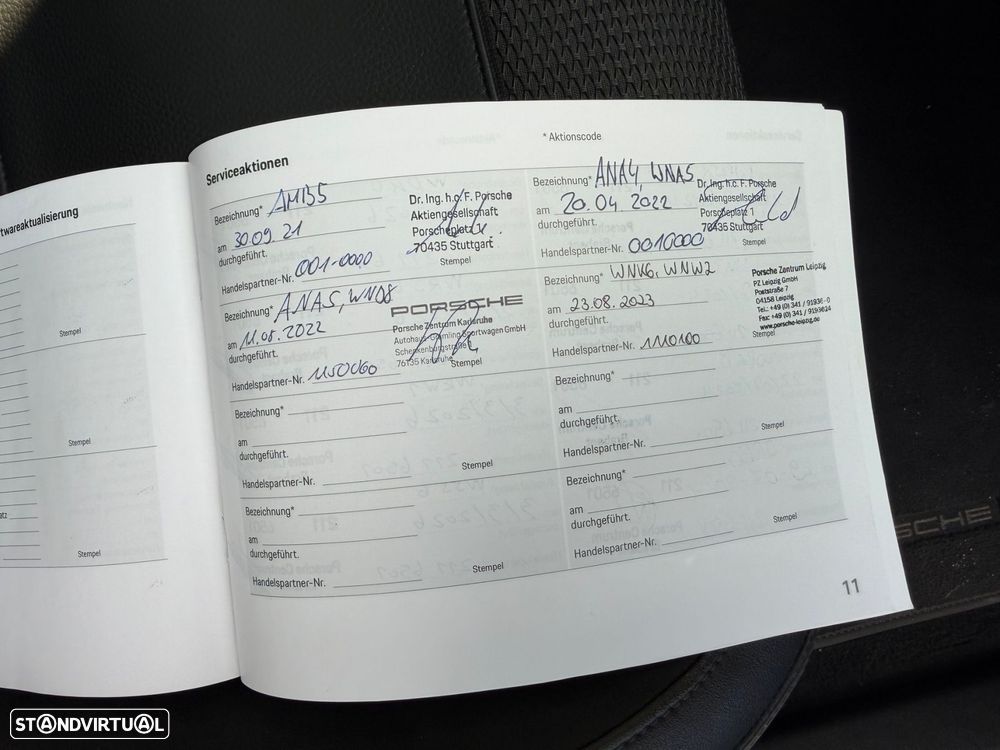 twareaktualisierung
Stempel
Stempel
atz
Stempel
Serviceaktionen
* Aktionscode
Bezeichnung* AMB5
am 30.09.21
durchgeführt.
Handelspartner-Nr. 001-0000
Dr. Ing. h.c. F. Porsche
Aktiengesellschaft
Porscheplatz 1
70435 Stuttgart
Stempel
Bezeichnung* ANA4, WNA5
am 20.04.2022
durchgeführt.
Handelspartner-Nr. 0010000
Dr. Ing. h.c. F. Porsche
Aktiengesellschaft
Porscheplatz 1
70435 Stuttgart
Stempel
Bezeichnung* ANA5, WND8
am 11.05.2022
durchgeführt.
Handelspartner-Nr. 1150060
PORSCHE
Porsche Zentrum Karlsruhe
Sportwagen GmbH
76135 Karlsruhe
Stempel
Bezeichnung* WNK6, WNW2
am 23.08.2023
durchgeführt.
Handelspartner-Nr. 1110100
Porsche Zentrum Leipzig
PZ Leipzig GmbH
Poststraße 7
04158 Leipzig
Tel.: +49 (0) 341 / 91936-0
Fax: +49 (0) 341 / 9193624
www.porsche-leipzig.de
Stempel
Bezeichnung*
am
durchgeführt.
Handelspartner-Nr.
Stempel
Bezeichnung*
am
durchgeführt.
Handelspartner-Nr.
Stempel
Bezeichnung*
am
durchgeführt.
Handelspartner-Nr.
Stempel
Bezeichnung*
am
durchgeführt.
Handelspartner-Nr.
Stempel
11
PORSCHE
STANDVIRTUAL